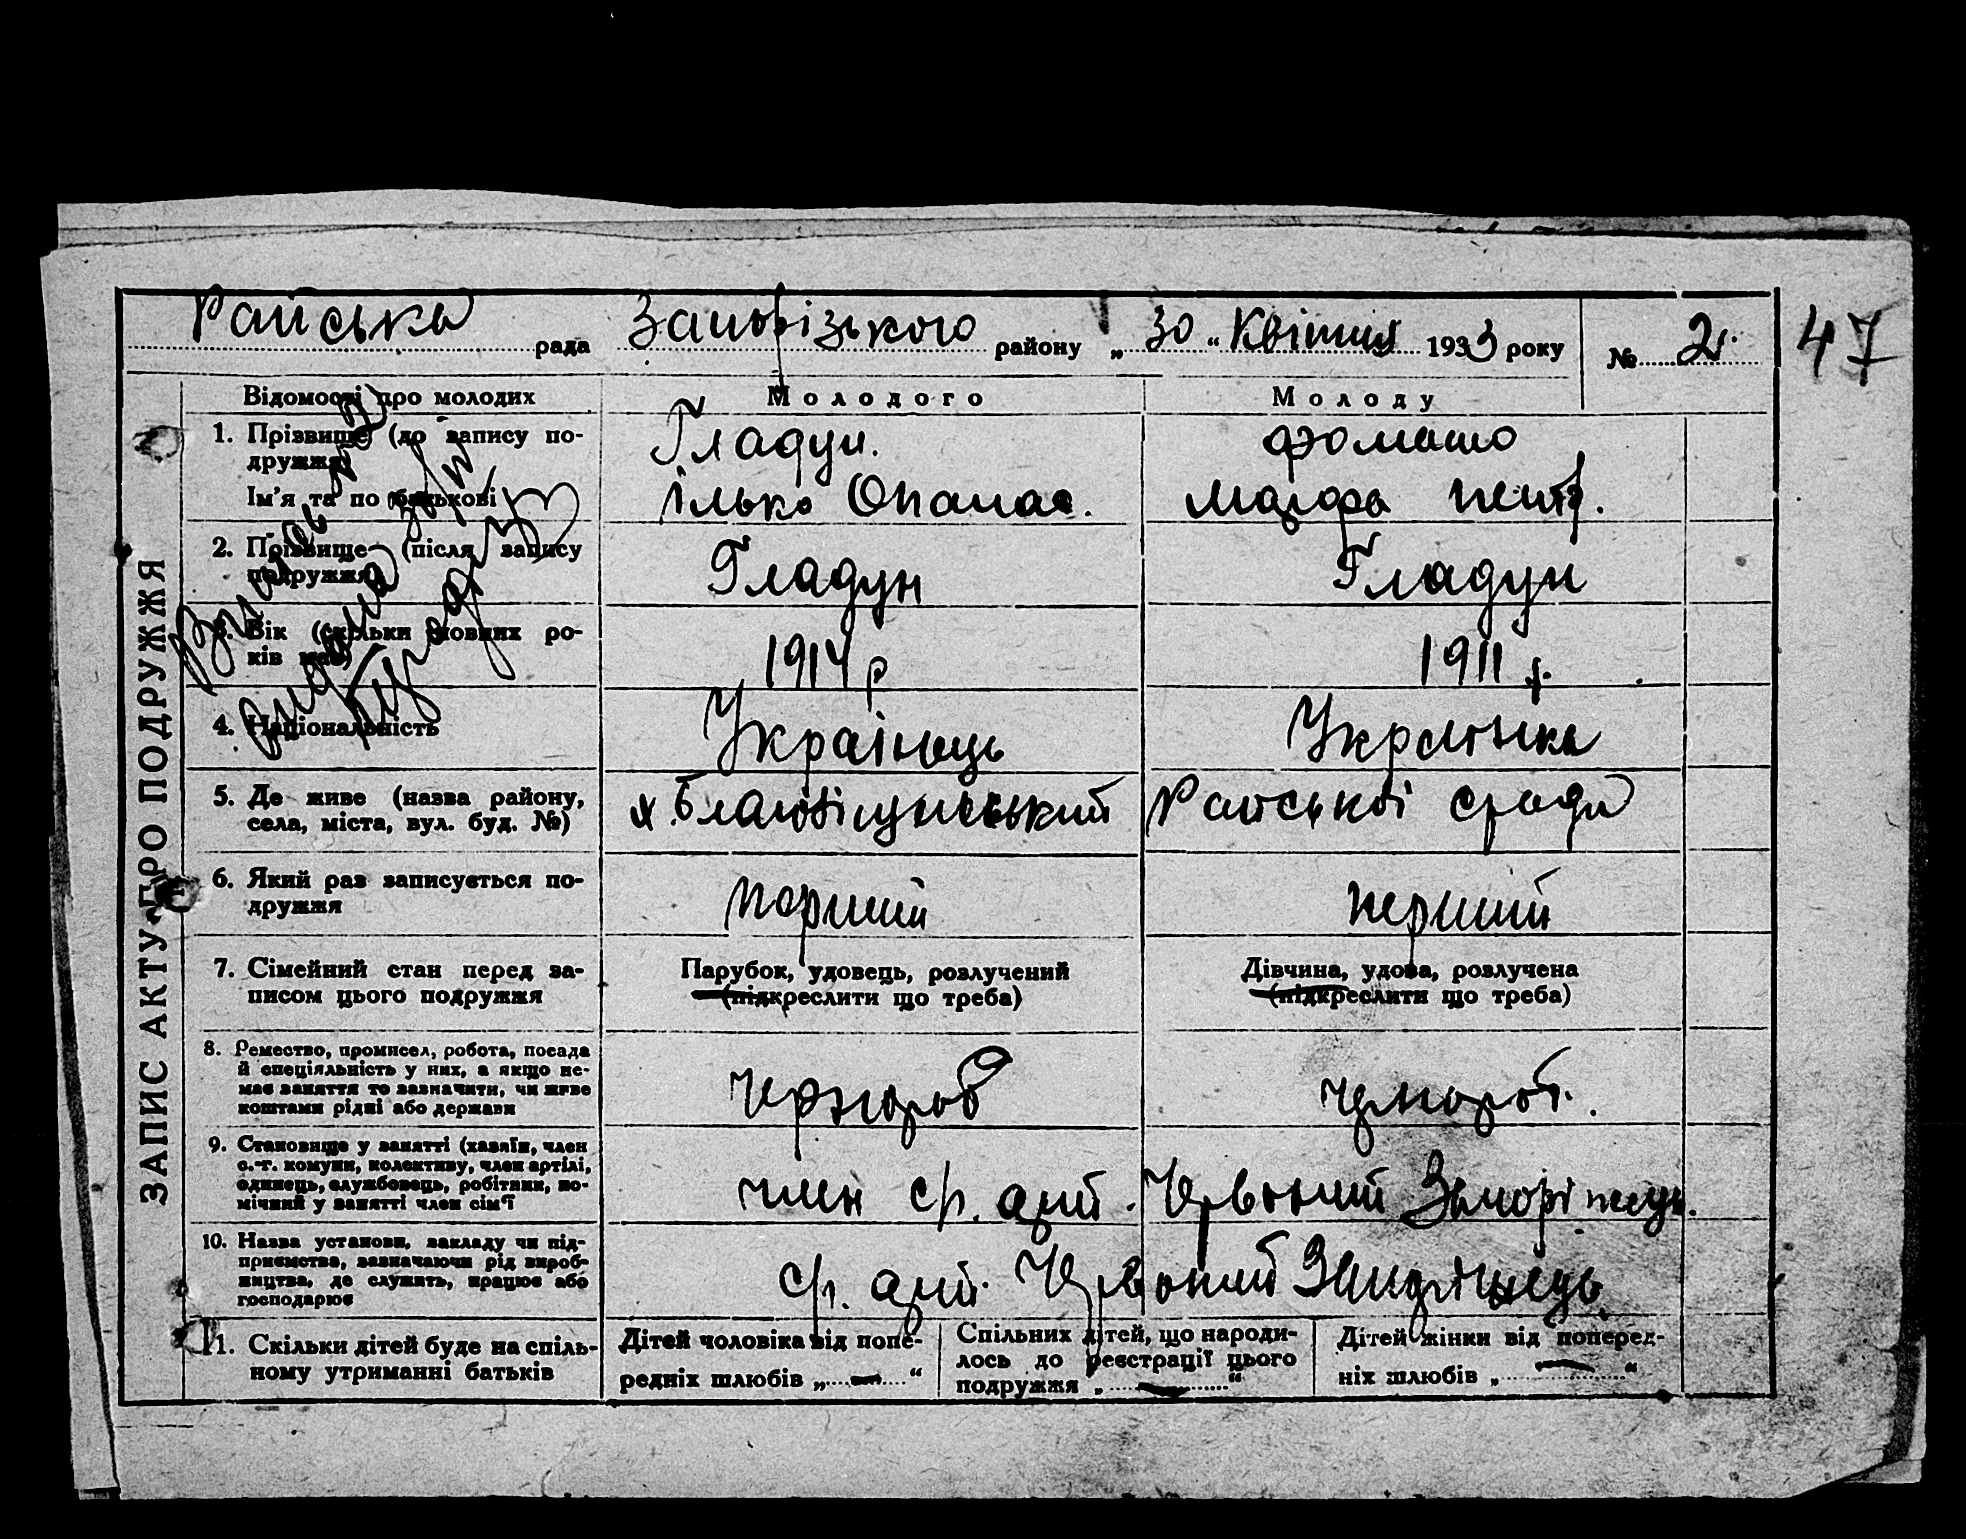 Райська рада Запорізького району „ 30 “ Квітня 1933 року № 2. 47
ЗАПИС АКТУ ПРО ПОДРУЖЖЯ
Відомості про молодих Молодого Молоду
1. Прізвище (до запису по-
дружжя) Гладун.
Ім'я та по батькові Ілько Опанас. петр.
2. Прізвище (після запису
подружжя) Гладун Гладун
3. Вік (скільки повних ро-
ків має) 1914 р 1911 р.
4. Національність Українець Українка
5. Де живе (назва району,
села, міста, вул. буд. №) х. Райської с ради
6. Який раз записується по-
дружжя перший перший
7. Сімейний стан перед за-
писом цього подружжя
Парубок, удовець, розлучений
(підкреслити що треба)
Дівчина, удова, розлучена
(підкреслити що треба)
8. Ремество, промисел, робота, посада
й спеціяльність у них, а якщо не-
має заняття то зазначити, чи живе
коштами рідні або держави
чорнороб чорнороб.
9. Становище у занятті (хазяїн, член
с.-г. комуни, колективу, член артілі,
одинець, службовець, робітник, по-
мічний у занятті член сім'ї
член с/г. арт. Червоний Запоріжець.
10. Назва установи, закладу чи під-
приємства, зазначаючи рід вироб-
ництва, де служить, працює або
господарює
с/г. арт. Червоний Запоріжець
11. Скільки дітей буде на спіль-
ному утриманні батьків
Дітей чоловіка від попе-
редніх шлюбів „ — “
Спільних дітей, що народи-
лось до реєстрації цього
подружжя „ — “
Дітей жінки від поперед-
ніх шлюбів „ — “